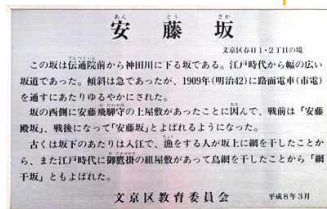 あん どう ざか
安藤坂
文京区春日1・2丁目の境
この坂は伝通院前から神田川に下る坂である。江戸時代から幅の広い
坂道であった。傾斜は急であったが、1909年(明治42)に路面電車(市電)
を通すにあたりゆるやかにされた。
坂の西側に安藤飛騨守の上屋敷があったことに因んで、戦前は「安藤
殿坂」、戦後になって「安藤坂」とよばれるようになった。
古くは坂下のあたりは入江で、漁をする人が坂上に網を干したことか
ら、また江戸時代に御鷹掛の組屋敷があって鳥網を干したことから「網
干坂」ともよばれた。
文京区教育委員会 平成8年3月